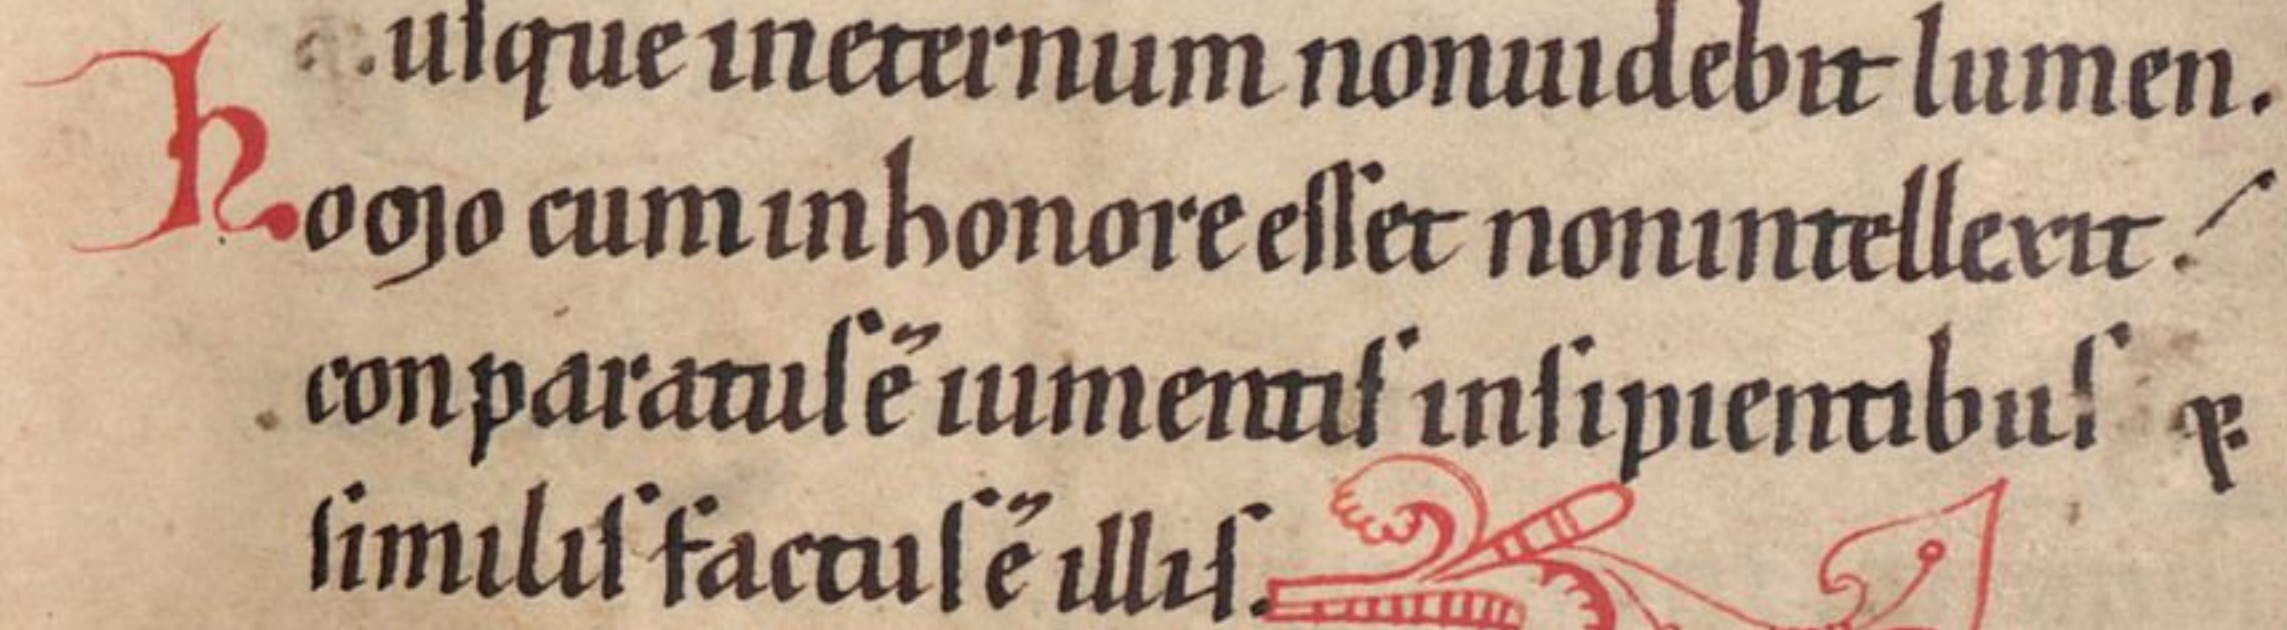 usque ineternum nonuidebit lumen.
homo cuminhonoreesset nonintellexit
conparatusē iumentis insipientibus
similis factusē illis.